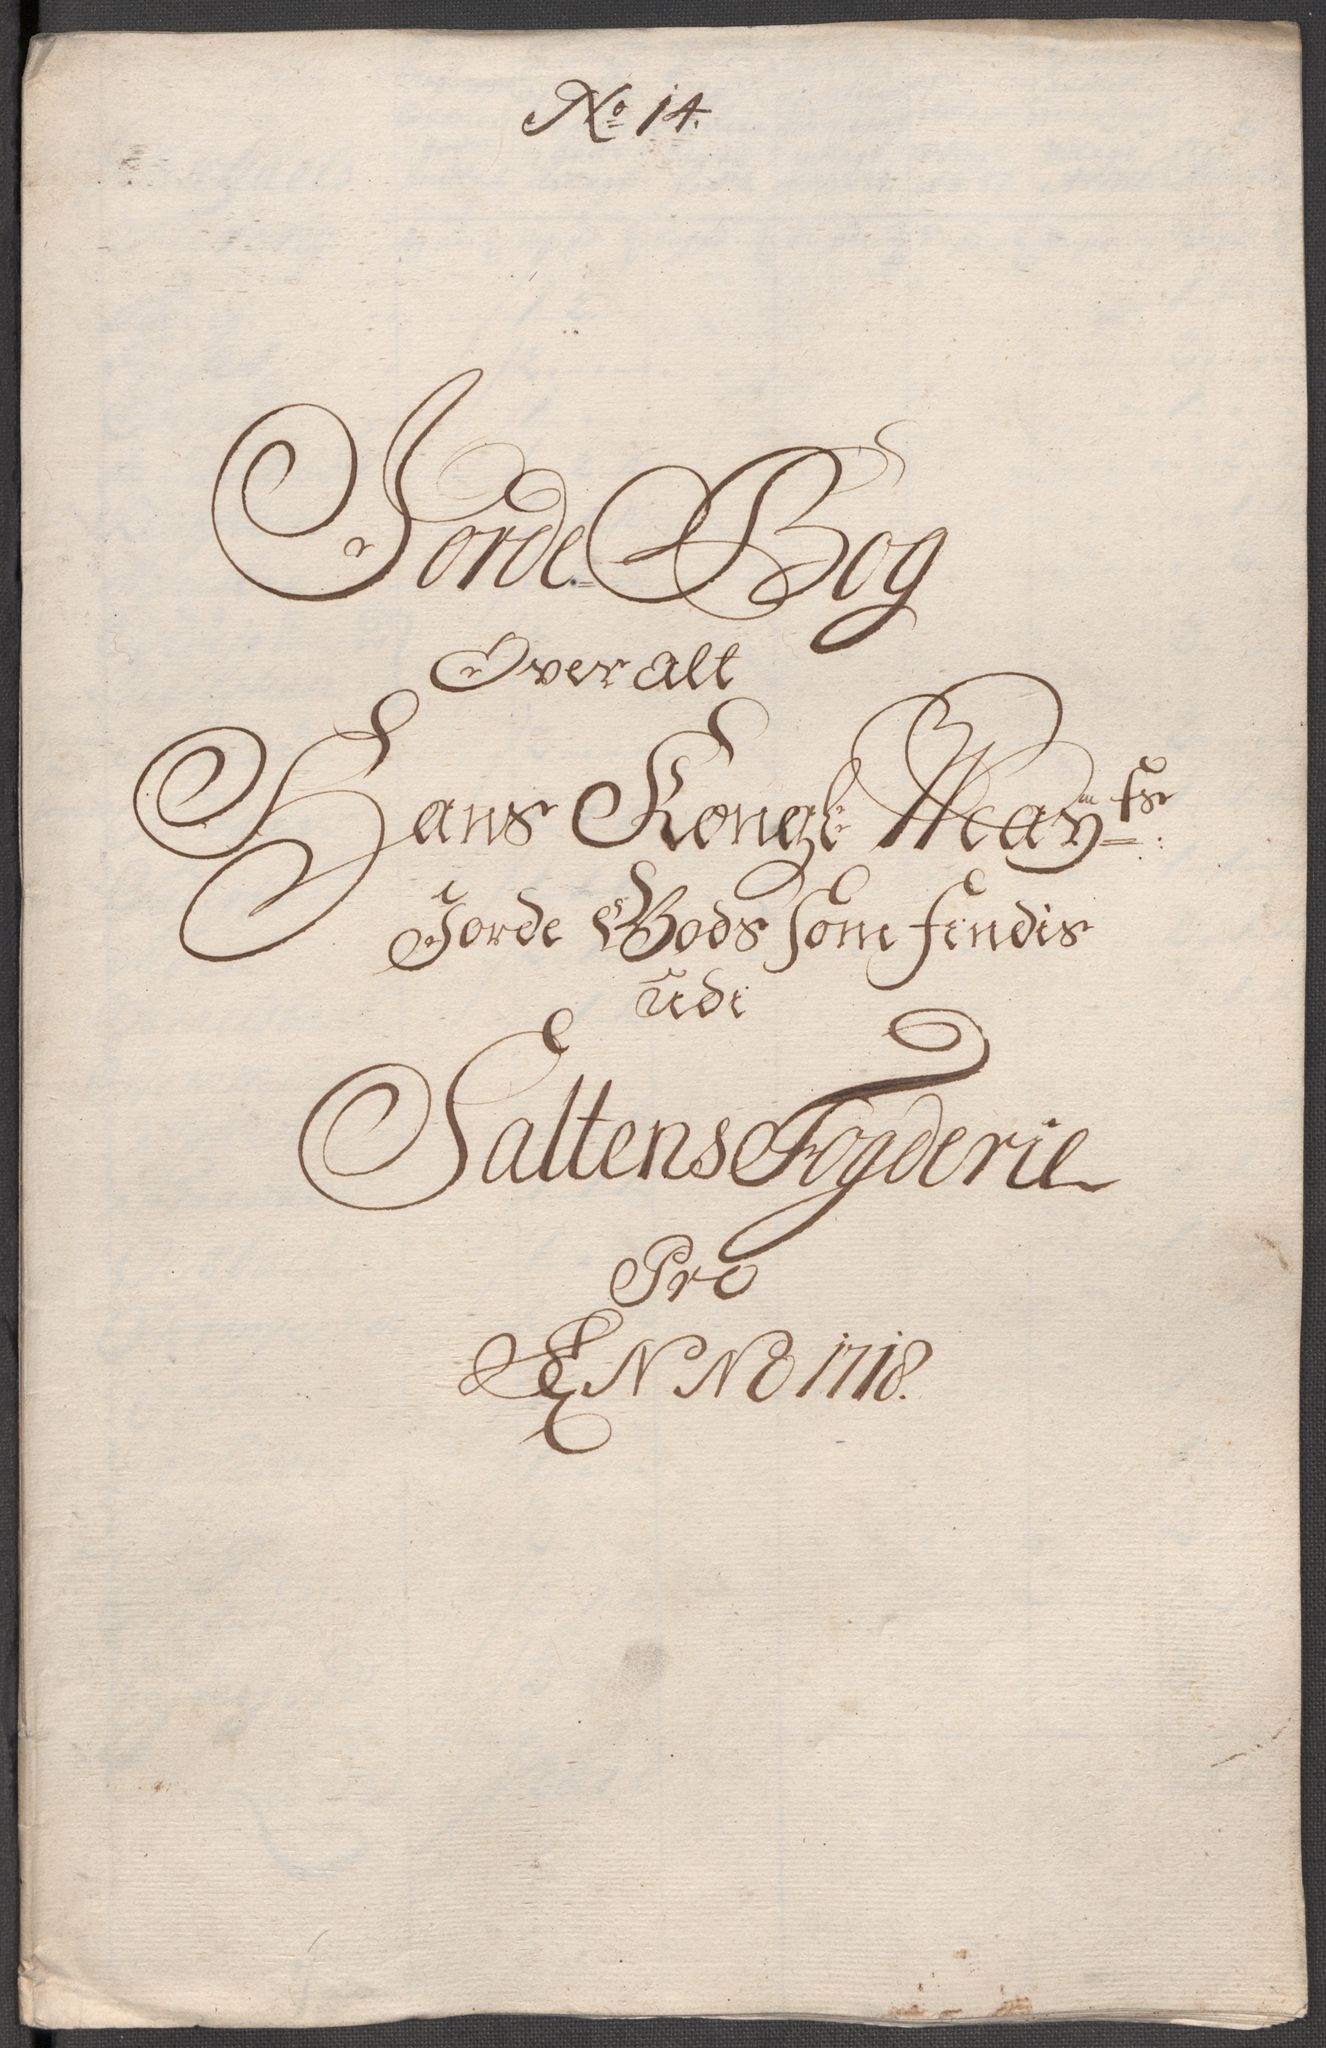 No 14.
Jorde-Bog
Over alt
Hans Kongl: Maÿts:
Jorde Gods som findis
udi
Saltens Fogderie
Pro
ANNO 1718.